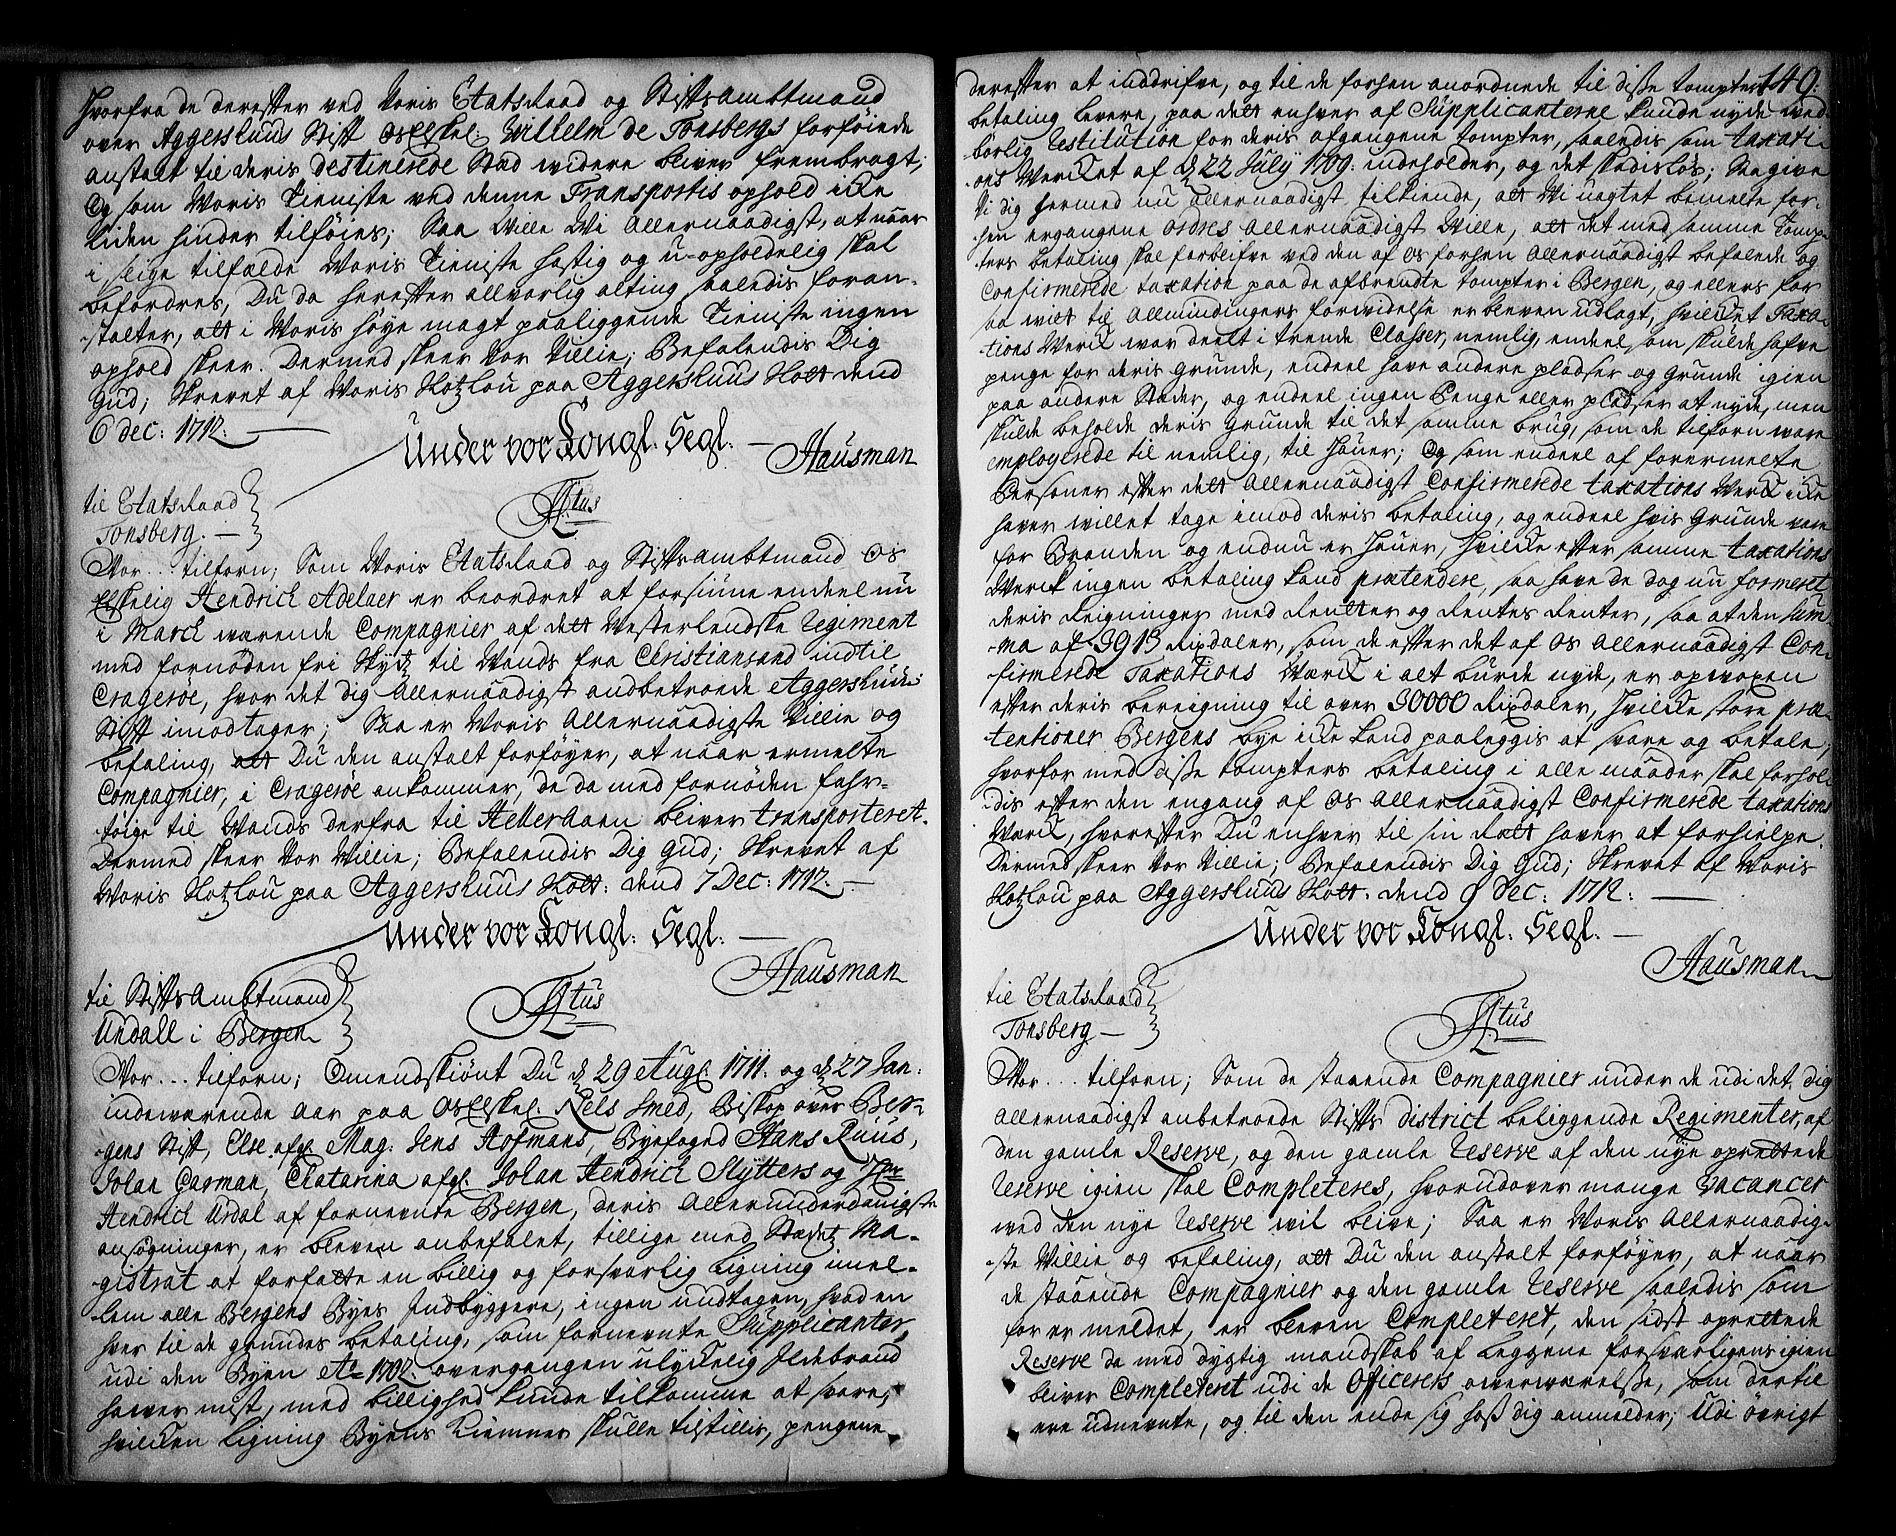 hvorfra de derefter ved Voris Etatsraad og Stiftsambtmand
over Aggershuus Stift os Elskel: Wilhelm de Tonsbergs forføiede
anstalt til deris destinerede Stæd widere bliver frembragt;
Og som Voris Tieniste ved denne Transportis ophold icke
liden hinder tilføies; Saa Ville Wi Allernaadigst, at naar
i slige tilfælde Voris Tieniste hastig og u-opholdelig skal
befordres, Du da herefter allvorlig alting saaledis foran-
stalter, att i Voris høye magt paaliggende Tieniste ingen
ophold skeer. Dermed skeer Vor Villie; Befalendis Dig
Gud; Skrevet af Voris Slotzlou paa Aggershuus Slott dend
6 dec: 1712.
Under vor Kongl. Segl.
Hausman
til Etatsraad
Tonsberg.
F 4tus
Vor... tilforn; Som Voris Etatsraad og Stiftsambtmand Os
Elskelig Hendrich Adelaer er beordret at forsiune endeel nu
i March wærende Compagnier af dett Vesterlendske Regiment
med fornøden fri Skydtz til Vands fra Christiansand indtil
Cragerøe, hvor det dig Allernaadigst andbetroede Aggershuus
Stift imodtager; Saa er Voris Allernaadigste Villie og
befaling, att Du den anstalt forføyer, at naar ermelte
Compagnier, i Cragerøe ankommer, de da med fornøden fahr-
tøige til Wands derfra til Hellerhaen bliver transporteret.
Dermed skeer Vor Villie; Befalendis Dig Gud; Skrevet af
Voris Slotzlou paa Aggershuus Slott. dend 7 Dec: 1712.
Under vor Kongl. Segl.
Hausman
til Stiftsambtmand
Undall i Bergen
F 4tus
Vor... tilforn; Omendskiønt Du d 29 Aug. 1711. og d 27 Jan:
indeværende aar paa Os Elskel. Nels Smed, Biskop over Ber-
gens Stift, Else afg. Mag. Jens Hofmans, Byefoged Hans Ruus,
Johan Garman, Chatarina afg. Johan Hendrich Slÿtters og
Hendrich Urdal af fornevnte Bergen, deris Allerunderdanigste
ansøgninger, er bleven anbefalet, tillige med Stædetz Ma-
gistrat at forfatte en billig og forsvarlig Ligning imel-
lem alle Bergens Byes Indbyggere, ingen undtagen, hvad en
hver til de grundes betaling, som fornevnte Supplicanter,
udi den Byen Ao 1702. overgangen ulyckelig Ildebrand
hawer mist, med billighed kunde tilkomme at svare,
hvilcken Ligning Byens Kiemner skulle tilstillis, pengene
140.
derefter at inddrifve, og til de forhen anordnede til disse tompters
betaling levere, paa dett enhver af Supplicanterne kunde nyde wed-
børlig Restitution for deris afgangene tompter, saaledis som taxati-
ons Vercket af d 22 July 1709. indeholder, og det skadisløs; Saa give
Vi dig hermed nu allernaadigst tilkiende, att Vi uagtet bemelte for-
hen ergangene ordres Allernaadigst Wille, att det med samme Tomp-
ters betaling skal forblifve ved den af Os forhen Allernaadigst befalede og
Confirmerede taxation paa de afbrendte tompter i Bergen, og ellers for
saa wiit til Allmindingers forvidelse er bleven udlagt, hvilcket Taxa-
tions Verck war deelt i trende Classer, nemlig, endeel som skulde hafve
penge for deris grunde, endeel have andere pladser og grunde igien
paa andere Stæder, og endeel ingen Penge eller pladser at nyde, men
skulde beholde deris grunde til det samme brug, som de tilforn ware
employerede til nemlig, til Hauer; Og som endeel af forermelte
Personer efter dett Allernaadigst Confirmerede taxations Verck icke
haver willet tage imod deris betaling, og endeel hvis grunde vare
for Branden og endnu er Hauer, hvilcke efter samme taxations
Verck ingen betaling kand prætendere, saa have de dog nu formeret
deris Reigninger med Rentter og Rentes Renter, saa at den sum-
ma af 3913 Rixdaler, som de efter det af Os Allernaadigst Con-
firmerede Taxations Værck i alt burde nyde, er opvoxen
efter deris bereigning til over 30000 Rixdaler, hvilcke store præ-
tentioner Bergens bye icke kand paaleggis at svare og betale,
hvorfor med disse tompters betaling i alle maader skal forhol-
dis efter den engang af Os Allernaadigst Confirmerede taxations
Værck, hvorefter Du enhver til sin Rætt haver at forhielpe.
Dermed skeer Vor Villie; Befalendis Dig Gud; Skrevet af Voris
Slotzlou paa Aggershuus Slott. dend 9 Dec: 1712.
Under vor Kongl. Segl.
Hausman
til Etatsraad
Tonsberg
F 4tus
Vor... tilforn; Som de staaende Compagnier under de udi det, dig
allernaadigst anbetroede Stifts district beliggende Regimenter, af
den gamle Reserve, og den gamle Reserve af den nye oprettede
Reserve igien skal Completeres, hvorudover mange Vacancer
ved den nye Reserve wil blive; Saa er Voris Allernaadig-
ste Villie og befaling, att Du den anstalt forføyer, at naar
de staaende Compagnier og den gamle Reserve saaledis som
for er meldet, er bleven Completeret, den sidst oprettede
Reserve da med dygtig mandskab af Leggene forsvarligens igien
bliver Completeret udi de Officerers overwærelse, som dertil
ere udnevnte, og til den ende sig hoss dig anmelder; Udi øvrigt